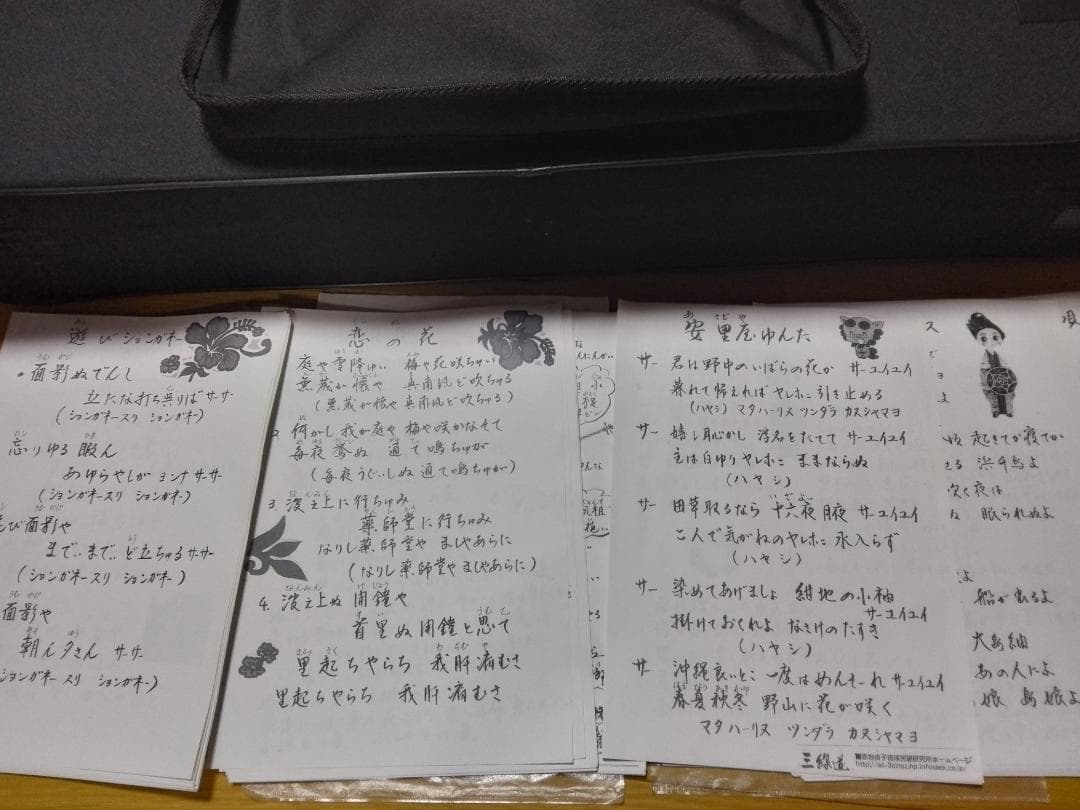 遊びションガネー
面影ぬでんし
立たな打ち戻りばサーサー
(ションガネースリ ションガネー)
忘りゆる暇ん
あゆらやしが ヨンナ サーサー
(ションガネースリ ションガネー)
び面影や
まで‥まで‥ど立ちゅるサーサー
(ションガネースリ ションガネー)
面影や
朝ん夕さん サーサー
ションガネースリ ションガネー)
恋の花
庭や雪降ゆい 梅や花咲ちゅい
無蔵が懐や 真南風ど吹ちゅる
(無蔵が懐や 真南風ど吹ちゅる)
何がし我が庭や 梅や咲かなそて
毎夜鶯ぬ 通て鳴ちゅが
(毎夜うぐいしぬ 通て鳴ちゅが)
3. 波之上に行ちゅみ
薬師堂に行ちゅみ
なりし薬師堂や ましやあらに
(なりし薬師堂や ましやあらに)
4. 波之上ぬ開鐘や
首里ぬ開鐘と思て
里起ちゃらち 我肝病むさ
里起ちゃらち 我肝病むさ
安里屋ゆんた
サー 君は野中のいばらの花か サーユイユイ
暮れて帰えれば ヤレホニ 引き止める
(ハヤシ) マタハーリヌ ツンダラ カヌシャマヨ
サー 嬉し恥かし 浮名をたてて サーユイユイ
主は白ゆり ヤレホニ ままならぬ
(ハヤシ)
サー 田草取るなら 十六夜月夜 サーユイユイ
二人で気がねの ヤレホニ 水入らず
(ハヤシ)
サー 染めてあげましょ 紺地の小袖
サーユイユイ
掛けておくれよ なさけのたすき
(ハヤシ)
サー 沖縄良いとこ 一度はめんそーれ サーユイユイ
春夏秋冬 野山に花が咲く
マタハーリヌ ツンダラ カヌシャマヨ
三線道
起きてか寝てか
浜千鳥よ
吹く夜は
眠られぬよ
よ
船が出るよ
大島紬
あの人によ
娘 島娘よ